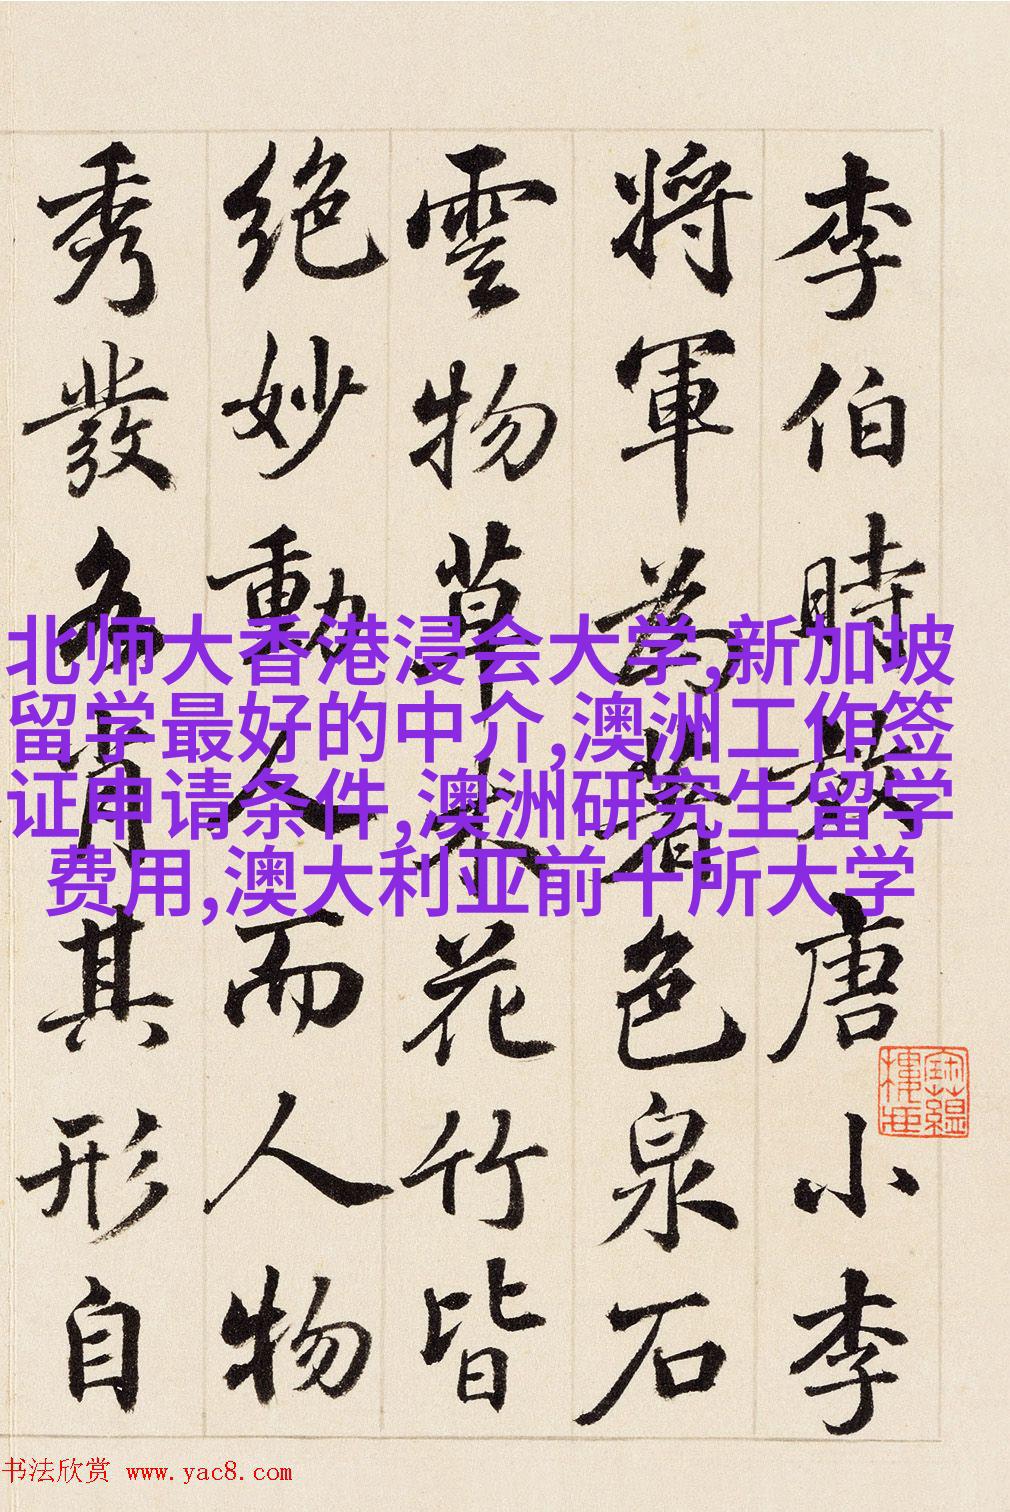 李伯時效唐小李
將軍為著色泉石
雲物草木花竹皆
絶妙動人而人物
秀發各肖其形自
北师大香港浸会大学,新加坡
留学最好的中介,澳洲工作签
证申请条件,澳洲研究生留学
费用,澳大利亚前十所大学
书法欣赏 www.yac8.com